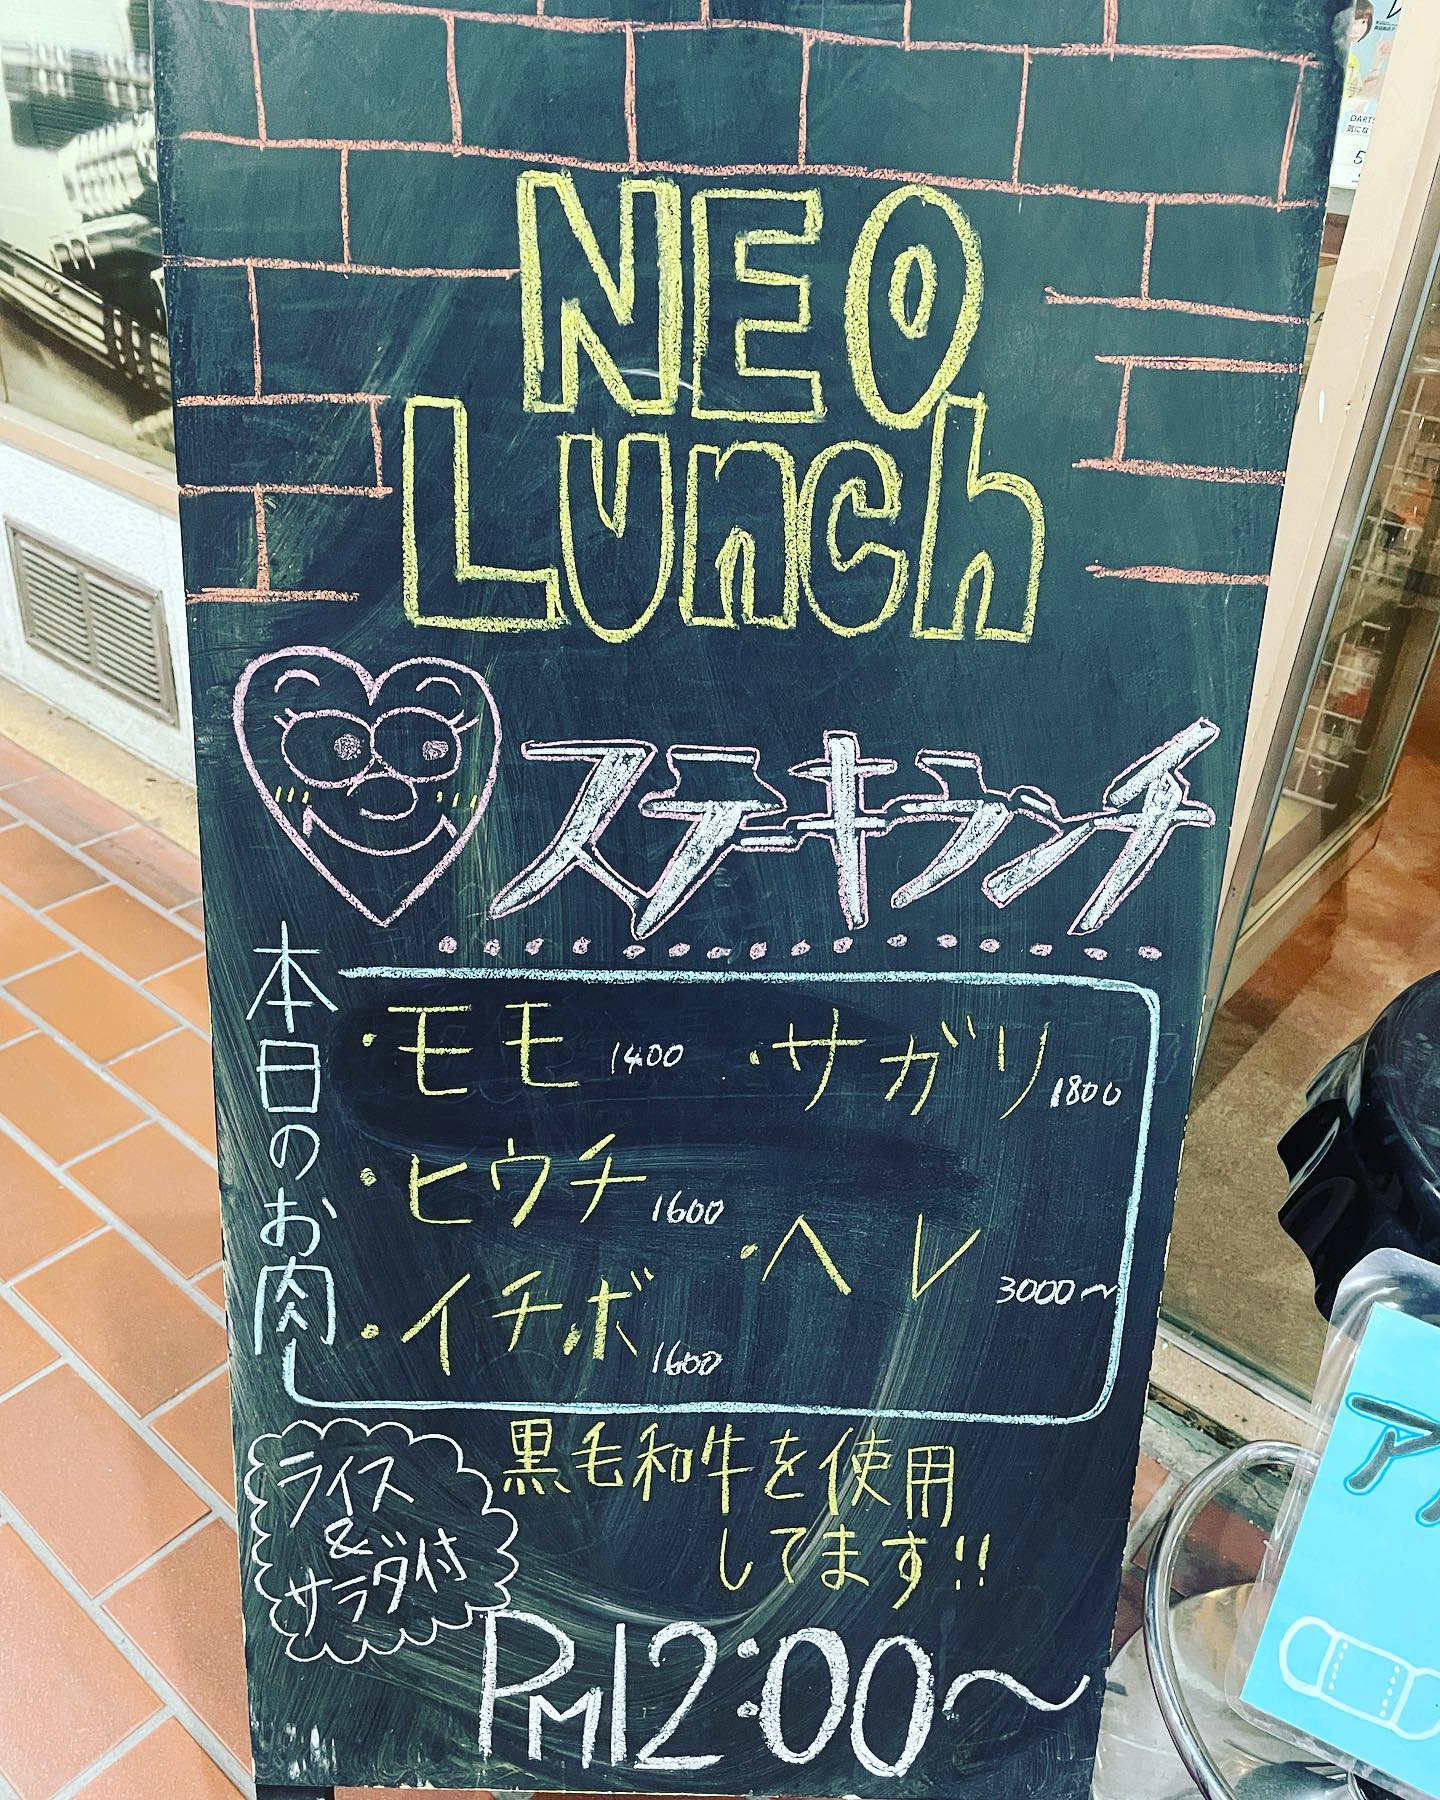 NEO
Lunch
ステーキランチ
本日のお肉
・モモ 1400
・サガリ 1800
・ヒウチ 1600
・ヘレ 3000〜
・イチボ 1600
ライス
&
サラダ付
黒毛和牛を使用
してます!!
PM12:00〜
DART
気にな
5
ア